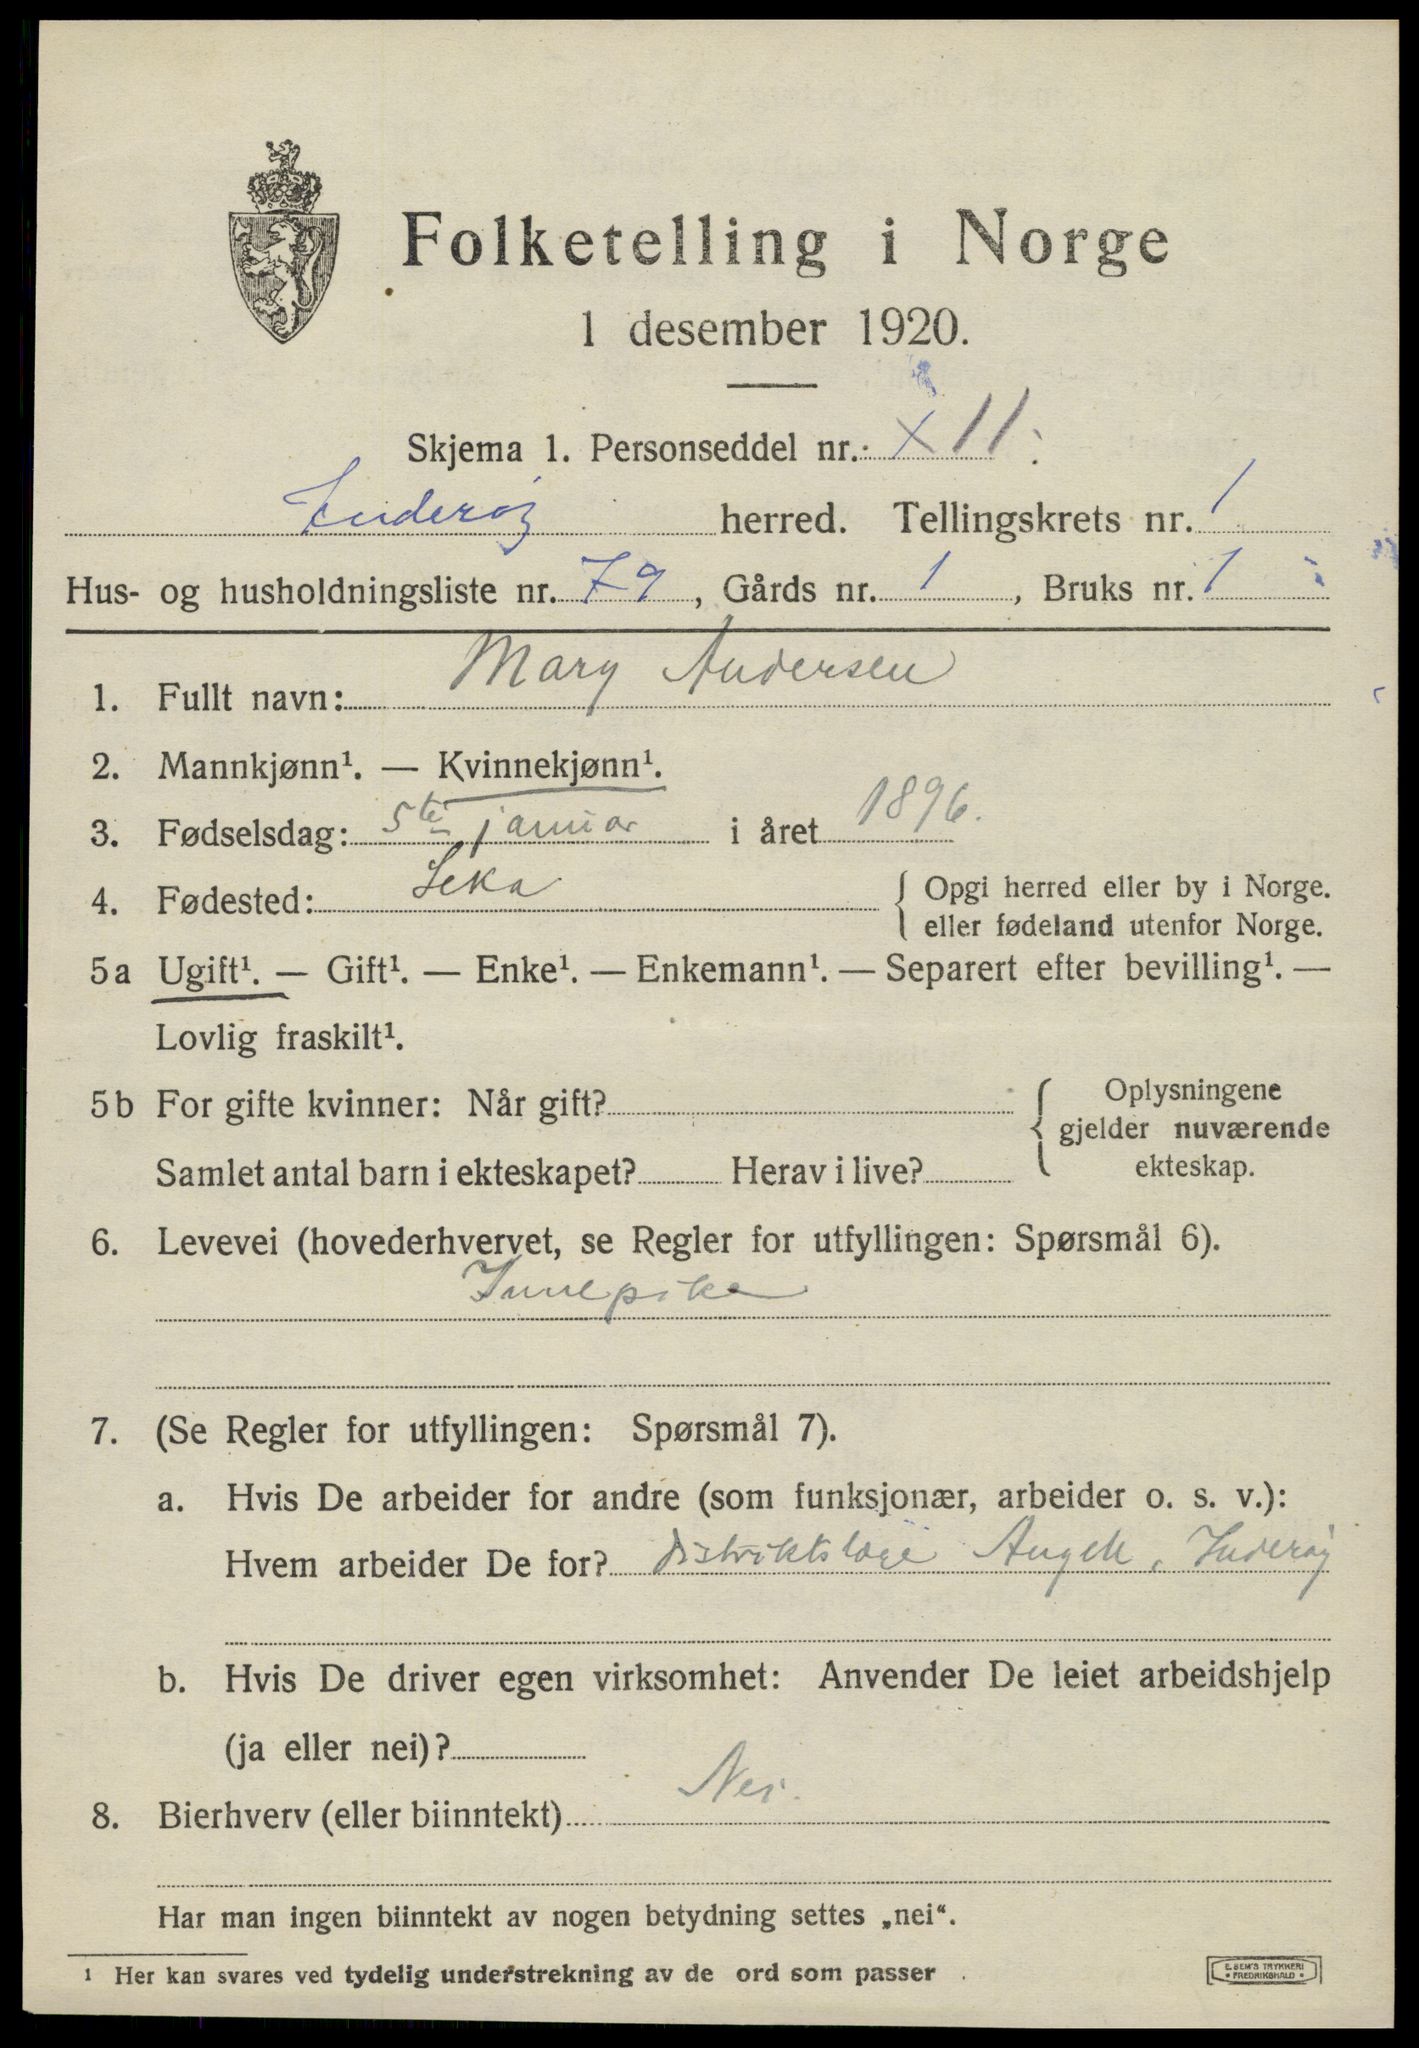 Folketelling i Norge
1 desember 1920.
Skjema 1. Personseddel nr. x 11.
Inderøy herred. Tellingskrets nr. 1
Hus- og husholdningsliste nr. 79, Gårds nr. 1, Bruks nr. 1
1. Fullt navn: Mary Andersen
2. Mannkjønn¹. — Kvinnekjønn¹.
3. Fødselsdag: 5te januar i året 1896.
4. Fødested: Leka { Opgi herred eller by i Norge.
eller fødeland utenfor Norge.
5a Ugift¹. — Gift¹. — Enke¹. — Enkemann¹. — Separert efter bevilling¹. —
Lovlig fraskilt¹.
5b For gifte kvinner: Når gift? { Oplysningene
gjelder nuværende
Samlet antal barn i ekteskapet? Herav i live? ekteskap.
6. Levevei (hovederhvervet, se Regler for utfyllingen: Spørsmål 6).
Innepike
7. (Se Regler for utfyllingen: Spørsmål 7).
a. Hvis De arbeider for andre (som funksjonær, arbeider o. s. v.):
Hvem arbeider De for? distriktslæge Angell, Inderøy
b. Hvis De driver egen virksomhet: Anvender De leiet arbeidshjelp
(ja eller nei)?
8. Bierhverv (eller biinntekt) Nei.
Har man ingen biinntekt av nogen betydning settes „nei“.
¹ Her kan svares ved tydelig understrekning av de ord som passer
E. SEM'S TRYKKERI
• FREDRIKSHALD •